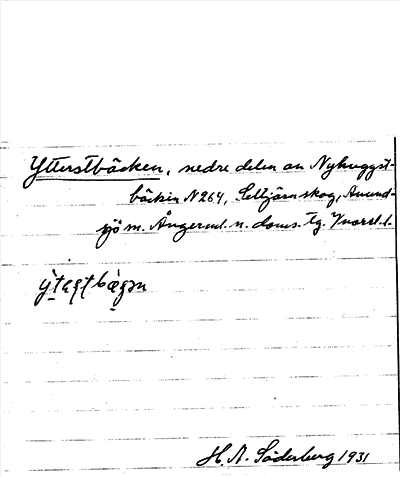 Ytterstbäcken, nedre delen av Nyhuggst-
bäcken N264, Selltjärn skog, Anund-
sjö sn. Ångerml. n. doms. tg. Vnorrl. l.
H. A. Söderberg 1931